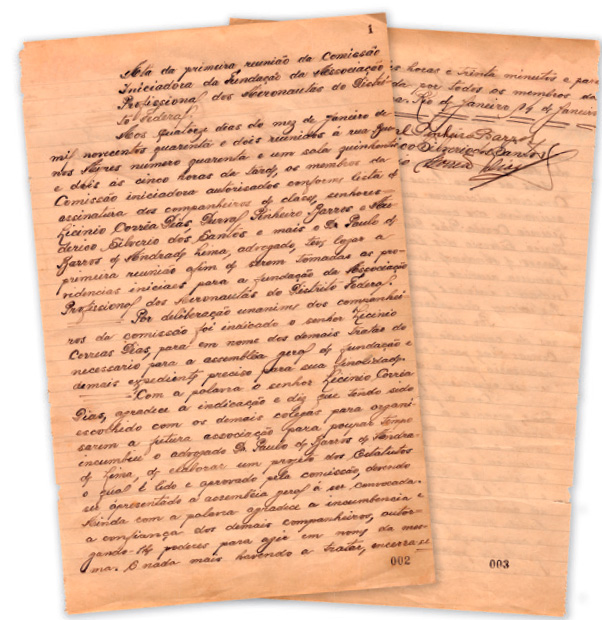 1
Acta da primeira reunião da Comissão
Iniciadora da Fundação da Associação
Profissional dos Aeronautas do Distri-
to Federal.
Aos quatorze dias do mez de Janeiro de
mil novecentos quarenta e dois reunidos á rua
numero quarenta e um sala quinhentos
e dois ás cinco horas da tarde, os membros da
Comissão iniciadora autorisados conforme lista de
assinatura dos companheiros de classe, senhores
Licinio Corrêa Dias, Durval Pinheiro Barros e
Silverio dos Santos e mais o Dr Paulo de
Barros de Andrade Lima, advogado, teve logar a
primeira reunião afim de serem tomadas as pro-
videncias iniciaes para a fundação da Associação
Profissional dos Aeronautas do Districto Federal.
Por deliberação unanime dos companhei-
ros da comissão foi indicado o senhor Licinio
Correas Dias, para em nome dos demais tratar do
necessario para a assembléa geral de fundação e
demais expediente preciso para sua finalidade.
Com a palavra o senhor Licinio Corrêa
Dias, agradece a indicação e diz que tendo sido
escolhido com os demais colegas para organi-
sarem a futura associação para poupar tempo
incumbiu o advogado Dr. Paulo de Barros de Andra-
de Lima, de elaborar um projeto dos Estatutos
o qual é lido e aprovado pela comissão, devendo
ser apresentado a assembléa geral á ser convocada.
Ainda com a palavra agradece a incumbencia e
a confiança dos demais companheiros, outor-
gando-lhe poderes para agir em nome da mes-
ma. E nada mais havendo a tratar, encerra-se
002
horas e trinta minutos e
da por todos os membros da
Rio de Janeiro, 14 de Janeiro
Pinheiro Barros
Silverio dos Santos
003